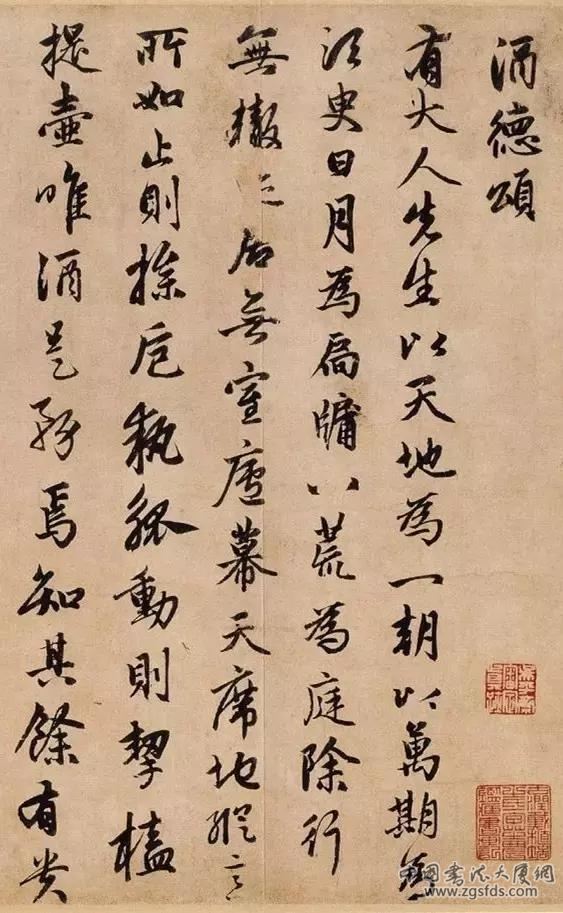 酒德頌
有大人先生以天地為一朝以萬期為
須臾日月為扃牖八荒為庭除行
無轍跡居無室廬幕天席地縱意
所如止則操巵執觚動則挈榼
提壺唯酒是務焉知其餘有貴
中国書法大厦網
www.zgsfds.com